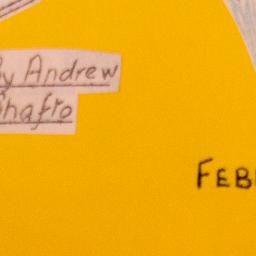 By Andrew
Shafto
FEB